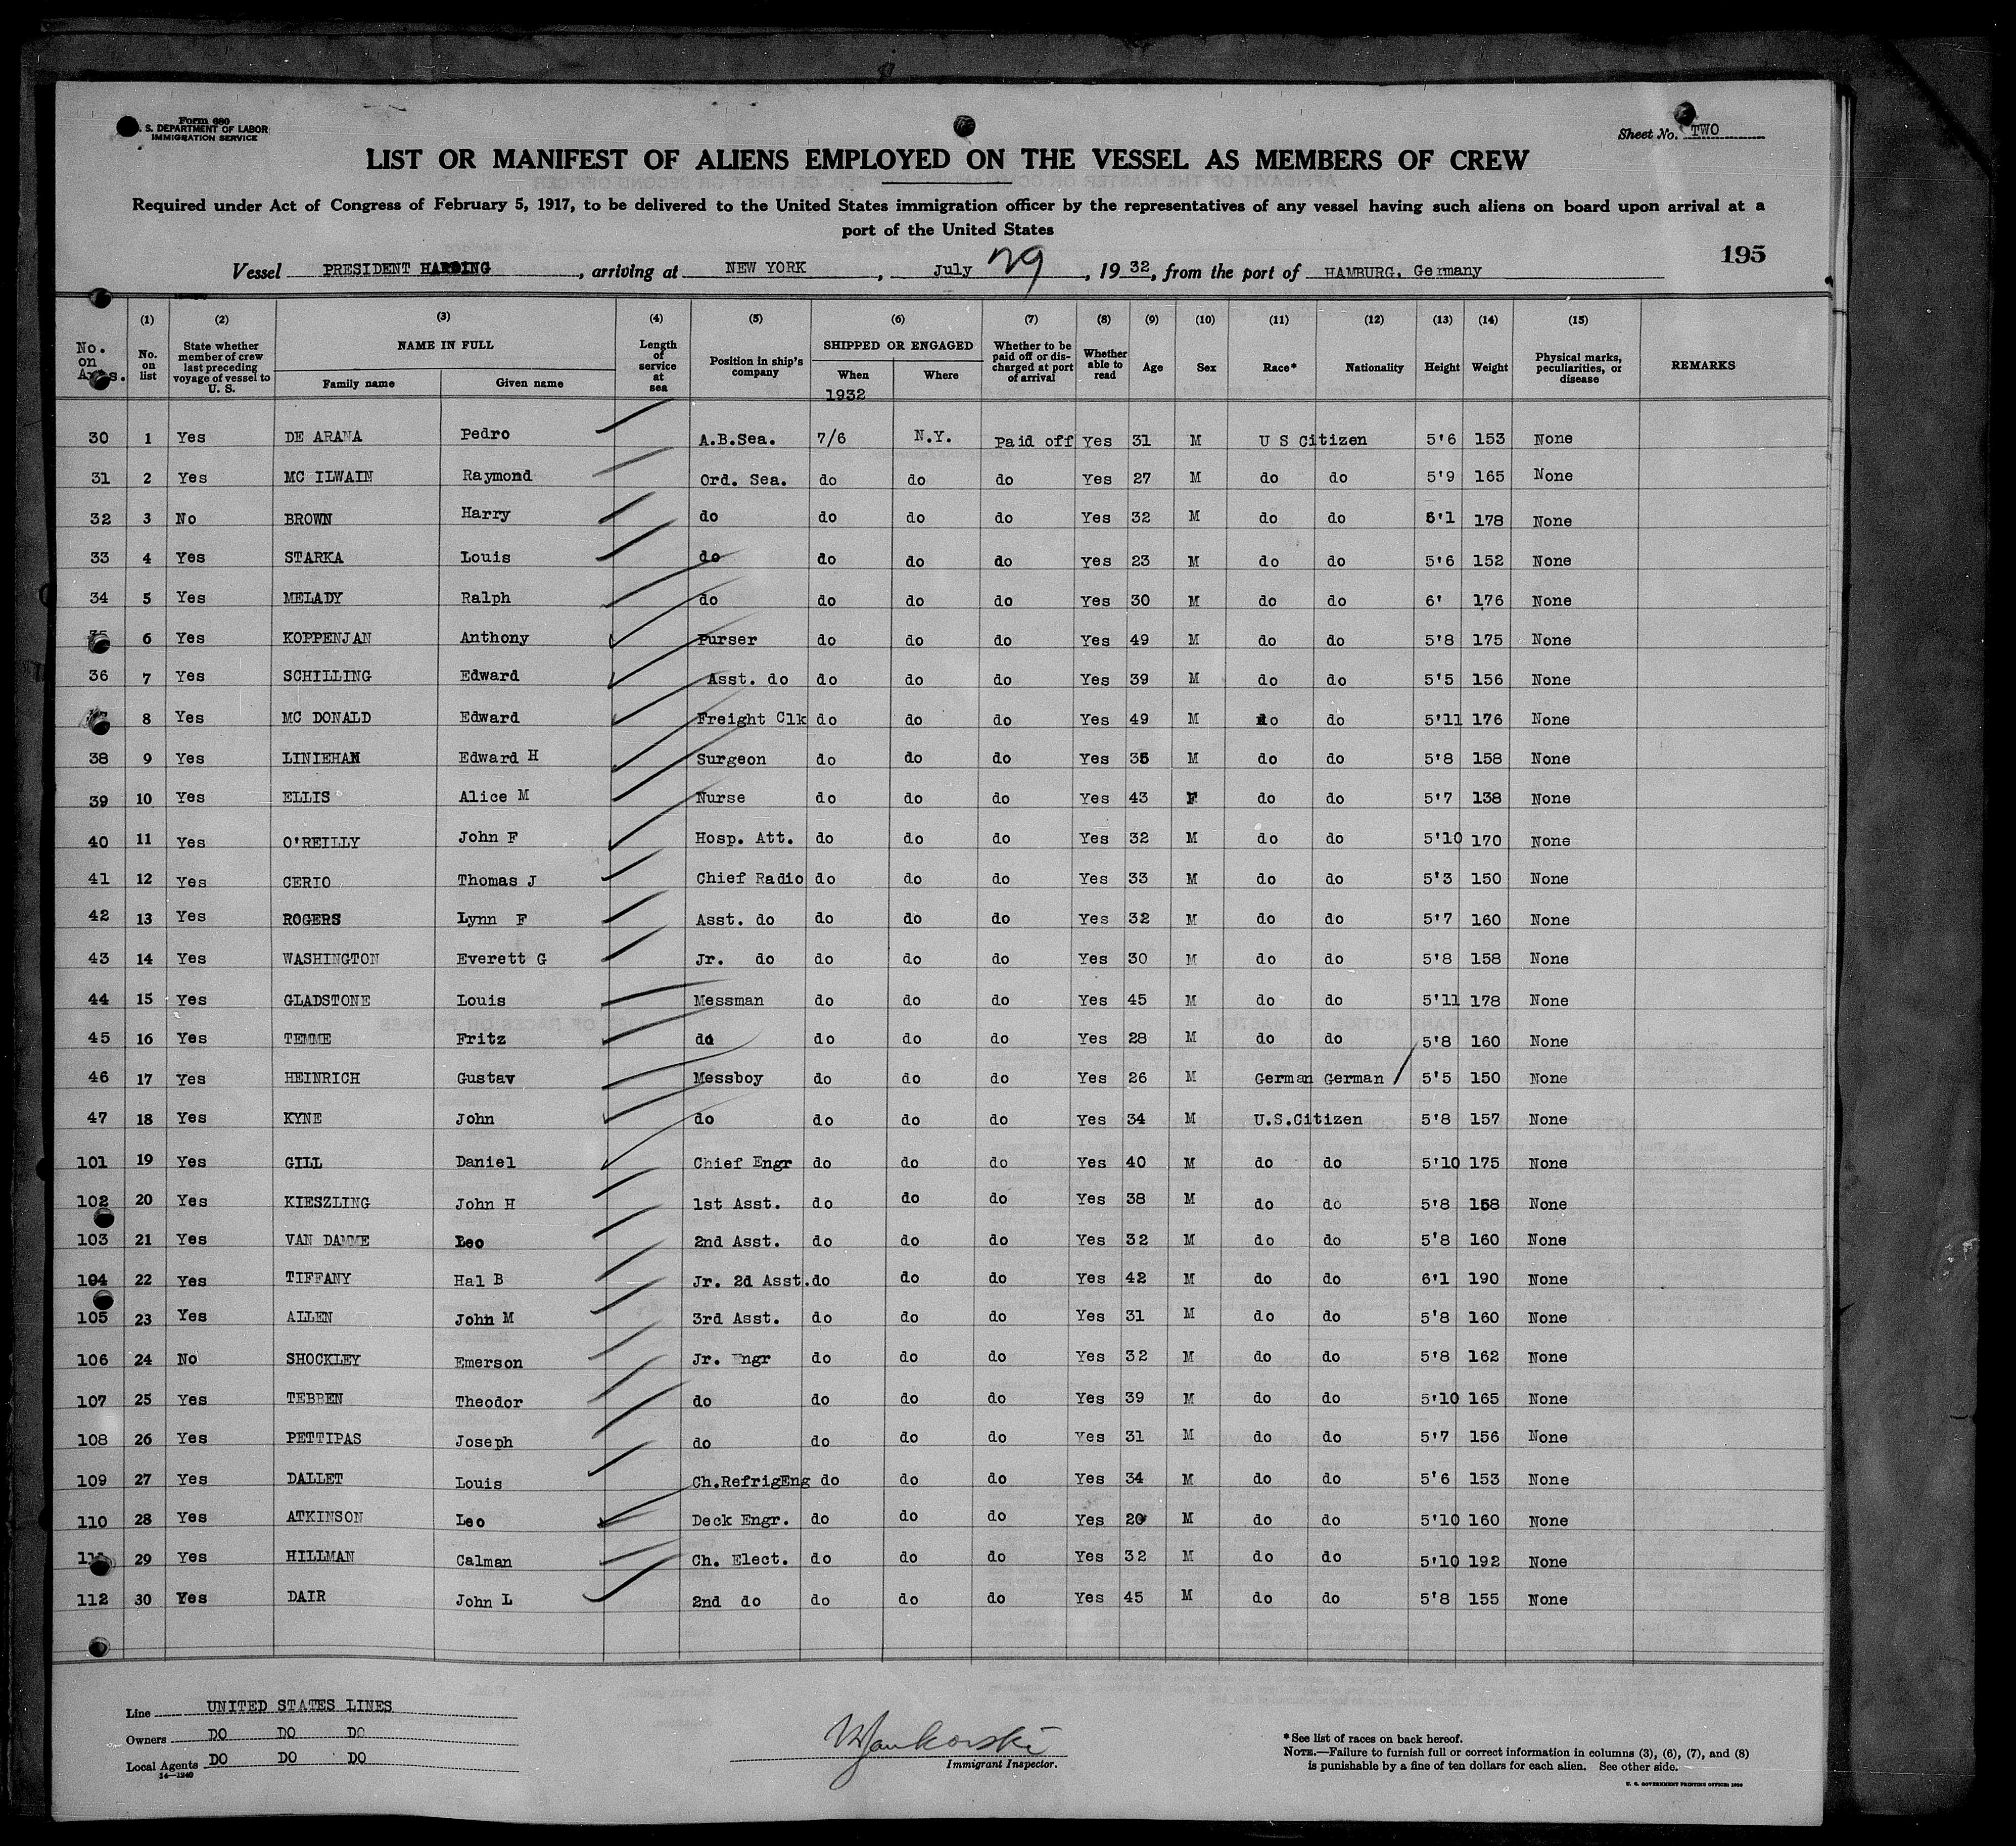 Form 680
S. DEPARTMENT OF LABOR
IMMIGRATION SERVICE
Sheet No. TWO
LIST OR MANIFEST OF ALIENS EMPLOYED ON THE VESSEL AS MEMBERS OF CREW
Required under Act of Congress of February 5, 1917, to be delivered to the United States immigration officer by the representatives of any vessel having such aliens on board upon arrival at a
port of the United States
195
Vessel PRESIDENT HARDING, arriving at NEW YORK, July 29, 1932, from the port of HAMBURG, Germany
No. on (1) No. on list (2) State whether member of crew last preceding voyage of vessel to U. S. (3) NAME IN FULL Family name Given name (4) Length of service at sea (5) Position in ship's company (6) SHIPPED OR ENGAGED When 1932 Where (7) Whether to be paid off or discharged at port of arrival (8) Whether able to read (9) Age (10) Sex (11) Race* (12) Nationality (13) Height (14) Weight (15) Physical marks, peculiarities, or disease REMARKS
30 1 Yes DE ARANA Pedro A.B.Sea. 7/6 N.Y. Paid off Yes 31 M U S Citizen 5'6 153 None
31 2 Yes MC ILWAIN Raymond Ord. Sea. do do do Yes 27 M do do 5'9 165 None
32 3 No BROWN Harry do do do do Yes 32 M do do 5'1 178 None
33 4 Yes STARKA Louis do do do do Yes 23 M do do 5'6 152 None
34 5 Yes MELADY Ralph do do do do Yes 30 M do do 6' 176 None
6 Yes KOPPENJAN Anthony Purser do do do Yes 49 M do do 5'8 175 None
36 7 Yes SCHILLING Edward Asst. do do do do Yes 39 M do do 5'5 156 None
8 Yes MC DONALD Edward Freight Clk do do do Yes 49 M do do 5'11 176 None
38 9 Yes LINIEHAN Edward H Surgeon do do do Yes 35 M do do 5'8 158 None
39 10 Yes ELLIS Alice M Nurse do do do Yes 43 F do do 5'7 138 None
40 11 Yes O'REILLY John F Hosp. Att. do do do Yes 32 M do do 5'10 170 None
41 12 Yes CERIO Thomas J Chief Radio do do do Yes 33 M do do 5'3 150 None
42 13 Yes ROGERS Lynn F Asst. do do do do Yes 32 M do do 5'7 160 None
43 14 Yes WASHINGTON Everett G Jr. do do do do Yes 30 M do do 5'8 158 None
44 15 Yes GLADSTONE Louis Messman do do do Yes 45 M do do 5'11 178 None
45 16 Yes TEMME Fritz do do do do Yes 28 M do do 5'8 160 None
46 17 Yes HEINRICH Gustav Messboy do do do Yes 26 M German German 5'5 150 None
47 18 Yes KYNE John do do do do Yes 34 M U.S.Citizen 5'8 157 None
101 19 Yes GILL Daniel Chief Engr do do do Yes 40 M do do 5'10 175 None
102 20 Yes KIESZLING John H 1st Asst. do do do Yes 38 M do do 5'8 158 None
103 21 Yes VAN DAMME Leo 2nd Asst. do do do Yes 32 M do do 5'8 160 None
104 22 Yes TIFFANY Hal B Jr. 2d Asst. do do do Yes 42 M do do 6'1 190 None
105 23 Yes ALLEN John M 3rd Asst. do do do Yes 31 M do do 5'8 160 None
106 24 No SHOCKLEY Emerson Jr. Engr do do do Yes 32 M do do 5'8 162 None
107 25 Yes TEBBEN Theodor do do do do Yes 39 M do do 5'10 165 None
108 26 Yes PETTIPAS Joseph do do do do Yes 31 M do do 5'7 156 None
109 27 Yes DALLET Louis Ch.RefrigEng do do do Yes 34 M do do 5'6 153 None
110 28 Yes ATKINSON Leo Deck Engr. do do do Yes 20 M do do 5'10 160 None
29 Yes HILLMAN Calman Ch. Elect. do do do Yes 32 M do do 5'10 192 None
112 30 Yes DAIR John L 2nd do do do do Yes 45 M do do 5'8 155 None
Line UNITED STATES LINES
Owners DO DO DO
Local Agents DO DO DO
14—1240
Immigrant Inspector.
*See list of races on back hereof.
NOTE.—Failure to furnish full or correct information in columns (3), (6), (7), and (8)
is punishable by a fine of ten dollars for each alien. See other side.
U. S. GOVERNMENT PRINTING OFFICE: